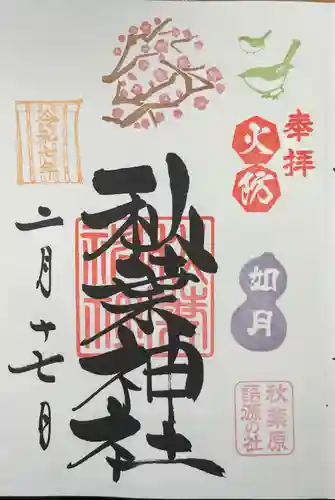 奉拝
火防
如月
秋葉原
語源の社
秋葉神社
二月十七日